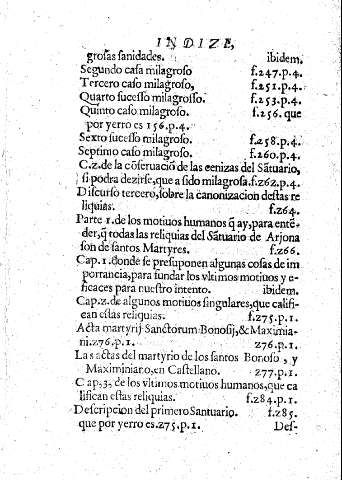 INDIZE,
grosas sanidades. ibidem.
Segundo caso milagroso f.247.p.4.
Tercero caso milagroso, f.251.p.4.
Quarto sucesso milagrosso. f.253.p.4.
Quinto caso milagroso. f.256. que
por yerro es 156.p.4.
Sexto sucesso milagroso. f.258.p.4.
Septimo caso milagroso. f.260.p.4.
C.z.de la cõseruaciõ de las cenizas del Sãtuario,
si podra dezirse, que a sido milagrosa.f.262.p.4.
Discurso tercero, sobre la canonizacion destas re
liquias. f.264.
Parte 1. de los motiuos humanos q̃ ay, para entē-
der, q̃ todas las reliquias del Sãtuario de Arjona
son de santos Martyres. f.266.
Cap.1.donde se presuponen algunas cosas de im
portancia, para fundar los vltimos motiuos y e-
ficaces para nuestro intento. ibidem.
Cap.z.de algunos motiuos singulares, que califi-
can estas reliquias. f.275.p.1.
Acta martyrij Sanctorum Bonosij, & Maximia-
ni.276.p.1. 276.p.1.
Las actas del martyrio de los santos Bonoso, y
Maximiano, en Castellano. 277.p.1.
Cap,3, de los vltimos motiuos humanos, que ca
lifican estas reliquias. f.284.p.1.
Descripcion del primero Santuario. f.285.
que por yerro es.275.p.1. Des-